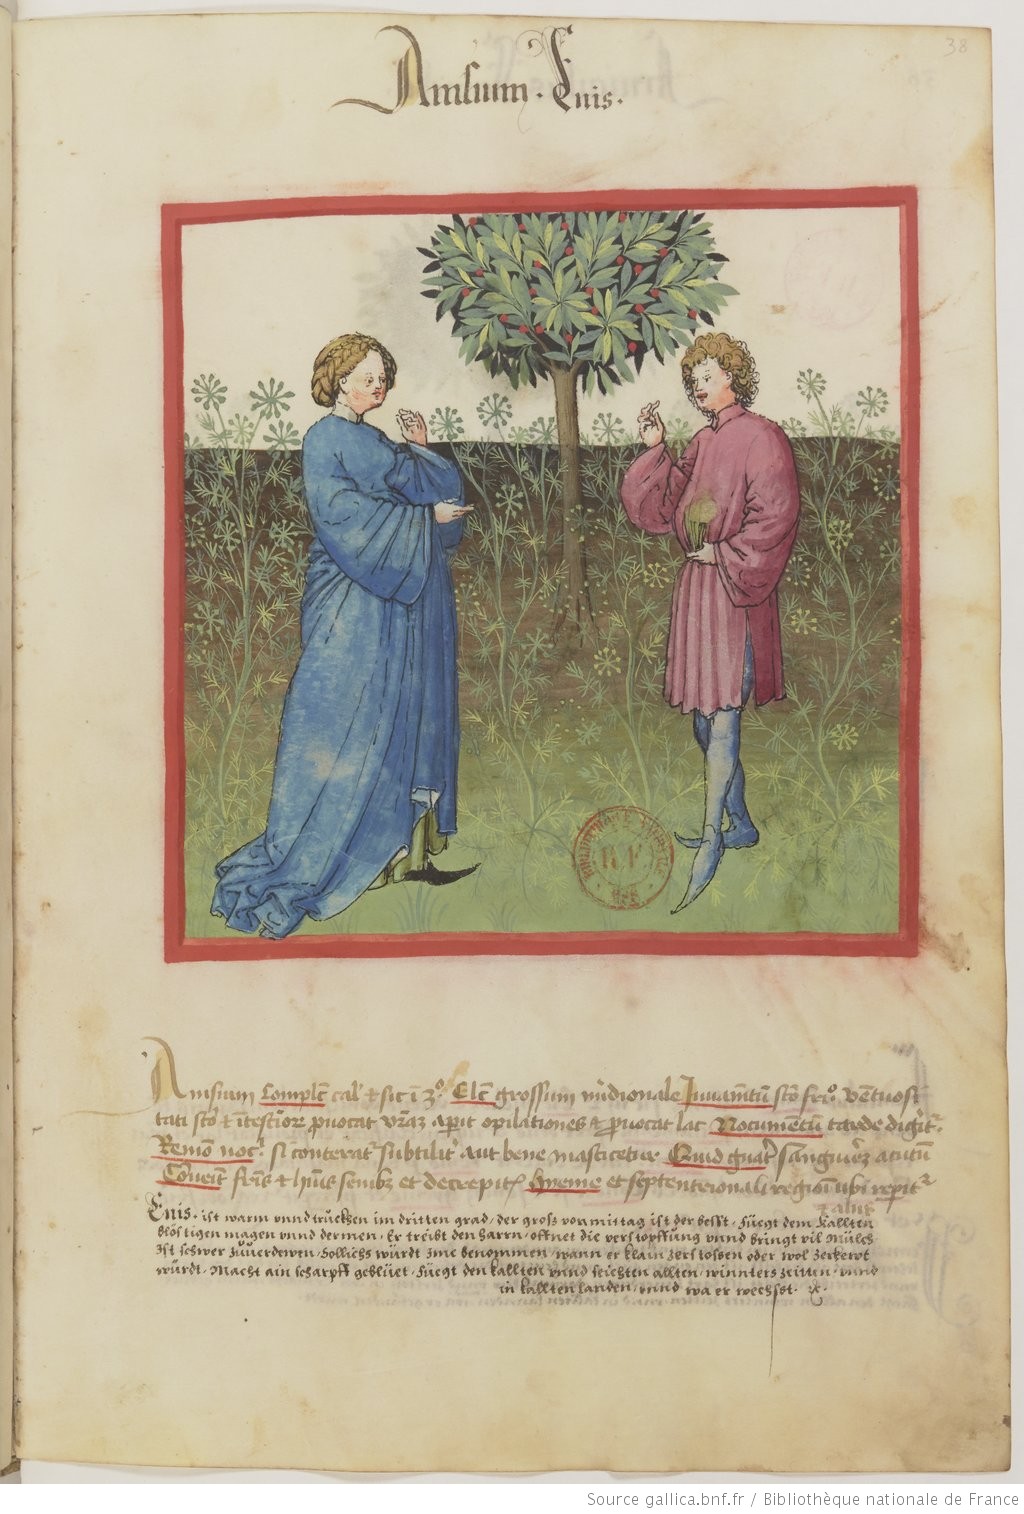 38
Anisium. Enis.
BIBLIOTHEQUE
R.F.
Anisium Complē cal' et sic' ī 3°. Elc̄ grossum m'idionale Juuamētū sto' fri°. ventuosi
tati sto' et ītestior' puocat vrāz apit opilationes et puocat lac Nocumētū tarde digit'.
Remō noc'. si conterat' subtilit' aut bene masticetur Quid gnāt' sanguinē acutū
Cōueīt fris et hūis senibz et decrepit' hyeme et septentrionali regiōi ubi repit'
Enis. ist warm vnnd trůckhen im dritten grad, der gross von mittag ist der besst. Fůegt dem kallten
blöstigen magen vnnd dermen, Er treibt den harn, offnet die verstopffung vnnd bringt vil Milch
Ist schwer zůuerdewen, Sollichs würdt ime benommen, wann er klain zerstossen oder wol zerkewt
würdt. Macht ain scharpff geblüet. Fůegt den kallten vnnd feichten allten, winnters zeitten, vnnd
in kallten landen, vnnd wa er wechsst.
Source gallica.bnf.fr / Bibliothèque nationale de France